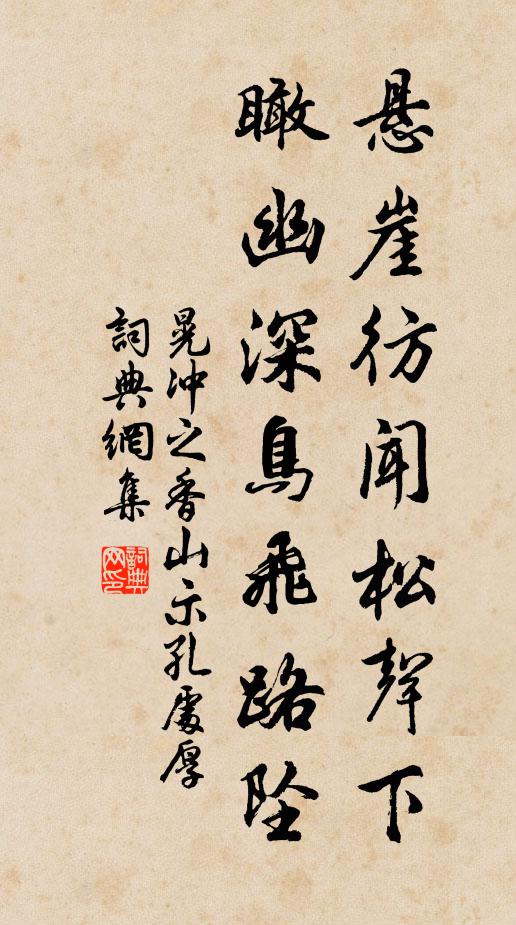 悬崖彷闻松聲下
瞰幽深鳥飛路坠
晁冲之香山示孔處厚
詞典網集
詞典网印